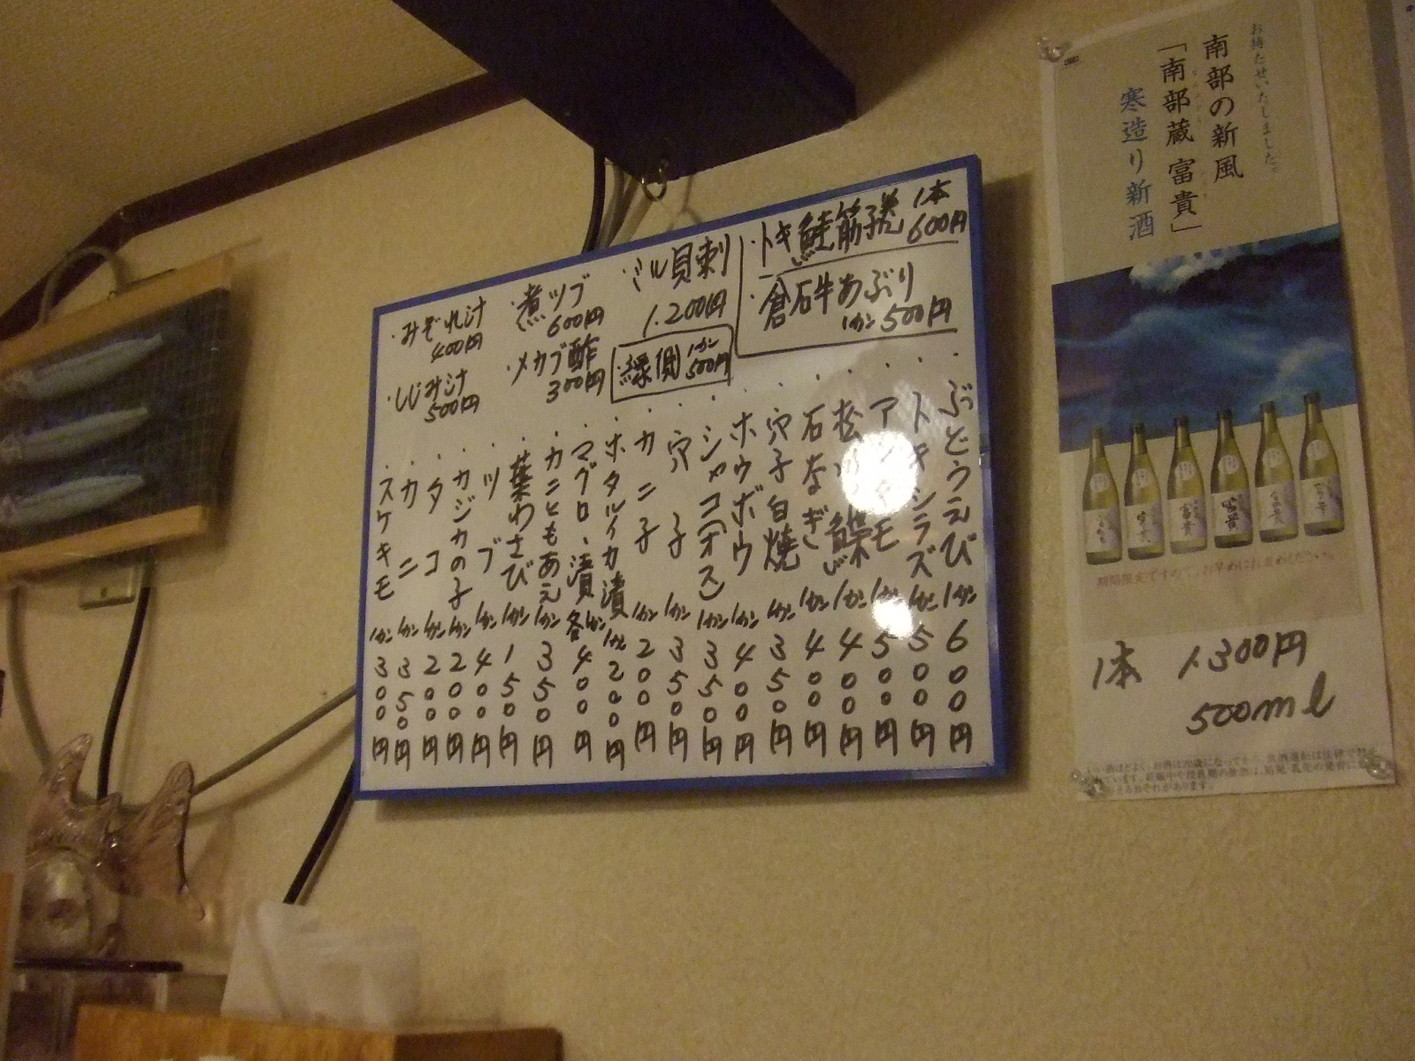 トキ鮭筋子巻 1本
600円
倉石牛あぶり
1カン 500円
ミル貝刺
1.200円
縁側 1カン
500円
煮ツブ
600円
メカブ酢
300円
みぞれ汁
400円
しじみ汁
500円
ぶどうえび 1カン 600円
トキシラズ 1カン 500円
1カン 500円
1カン 400円
石なぎ 1カン 400円
穴子白焼 1カン 350円
ホウボウ 1カン 400円
シャコ(オス) 1カン 350円
穴子 1カン 350円
カニ子 1カン 200円
ホタルイカ漬 1カン 200円
マグロ、漬 各1カン 400円
カニともあえ 1カン 350円
葉わさび 1カン 150円
ツブ 1カン 400円
カジカの子 1カン 200円
タコ 1カン 200円
カニ 1カン 350円
スケキモ 1カン 300円
お待たせいたしました。
南部の新風
「南部蔵 富貴」
寒造り新酒
期間限定ですので、お早めにお求めください。
1本 1.300円
500ml